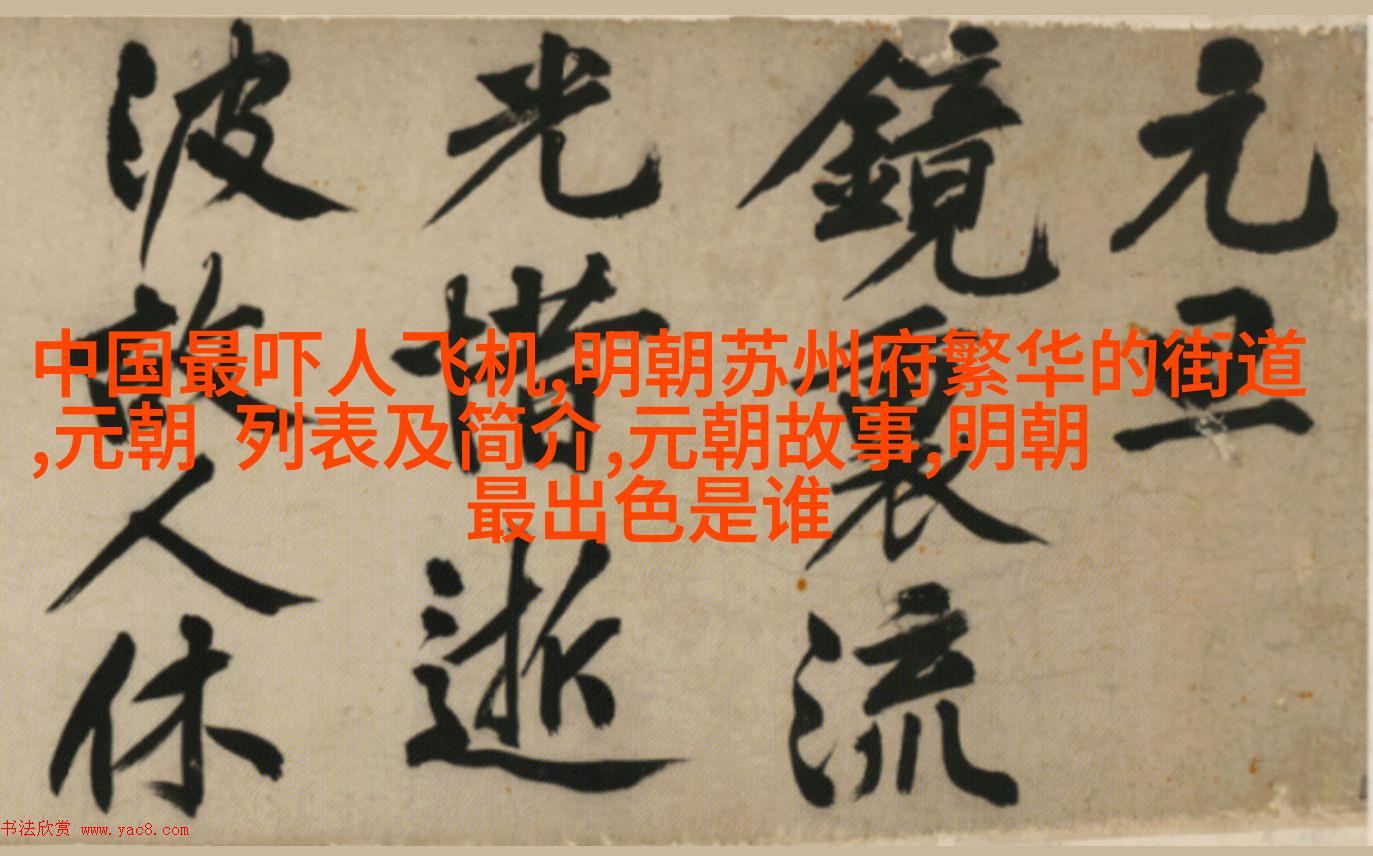 元旦
鏡裏流
光惜逝
波故人休
中国最吓人飞机,明朝苏州府繁华的街道
,元朝 列表及简介,元朝故事,明朝
最出色是谁
书法欣赏 www.yac8.com